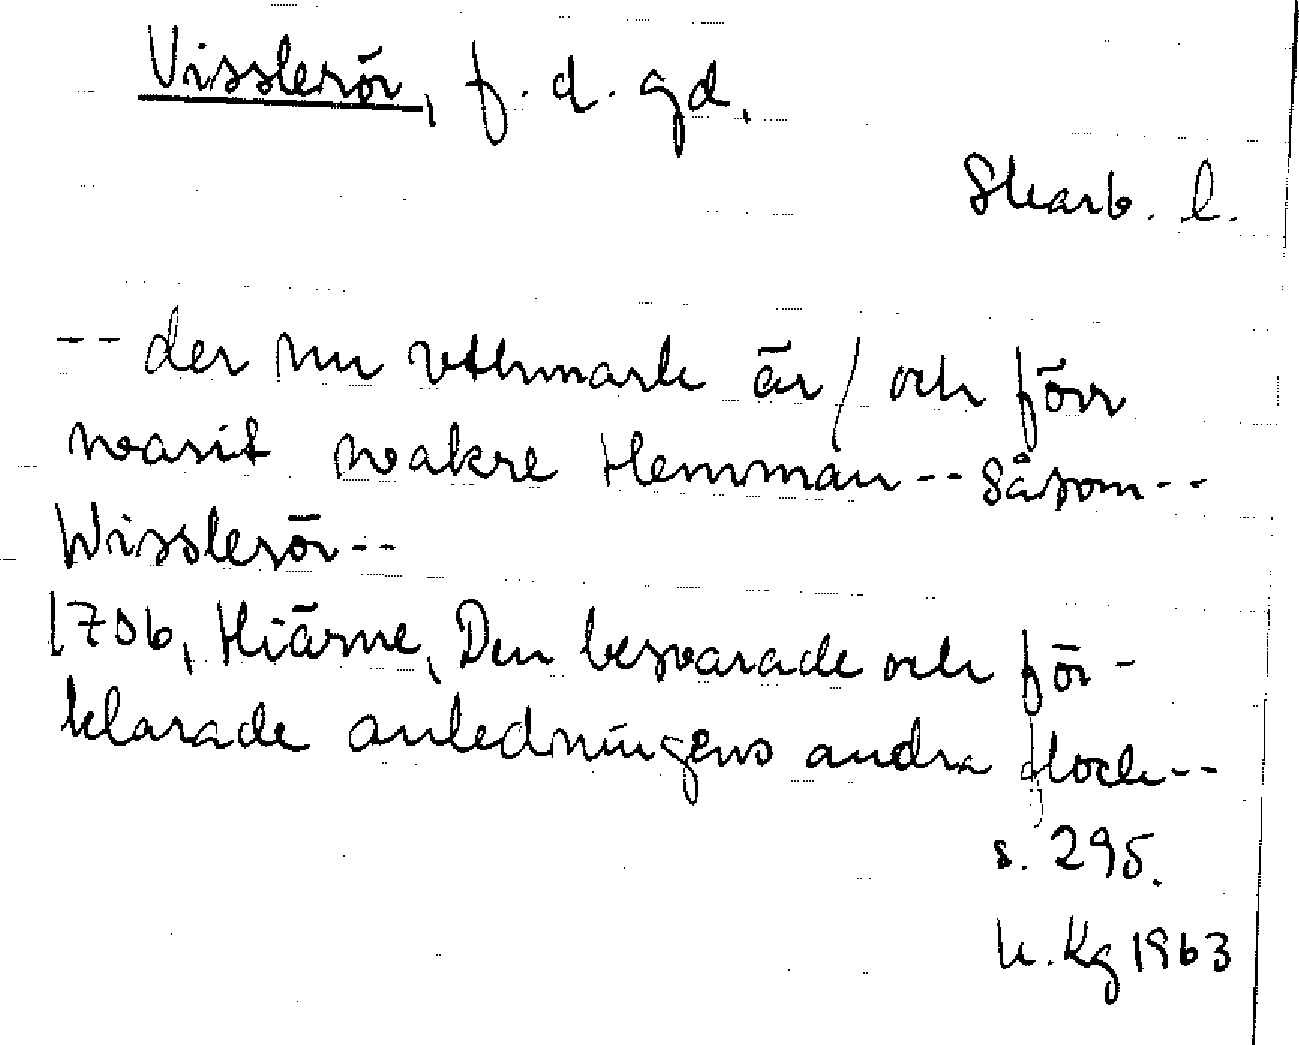 Visslerör, f. d. gd.
Skarb. l.
-- der nu vthmark är / och förr
warit wakre Hemman -- såsom --
Wisslerör --
1706, Hiärne, Den besvarade och för-
klarade anledningens andra flock --
s. 295.
K. Kg 1963